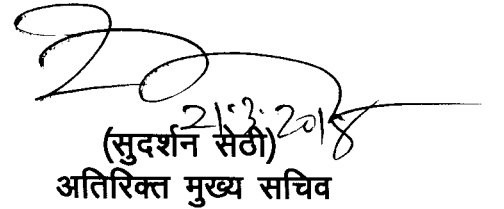 21.3.2018
(सुदर्शन सेठी)
अतिरिक्त मुख्य सचिव